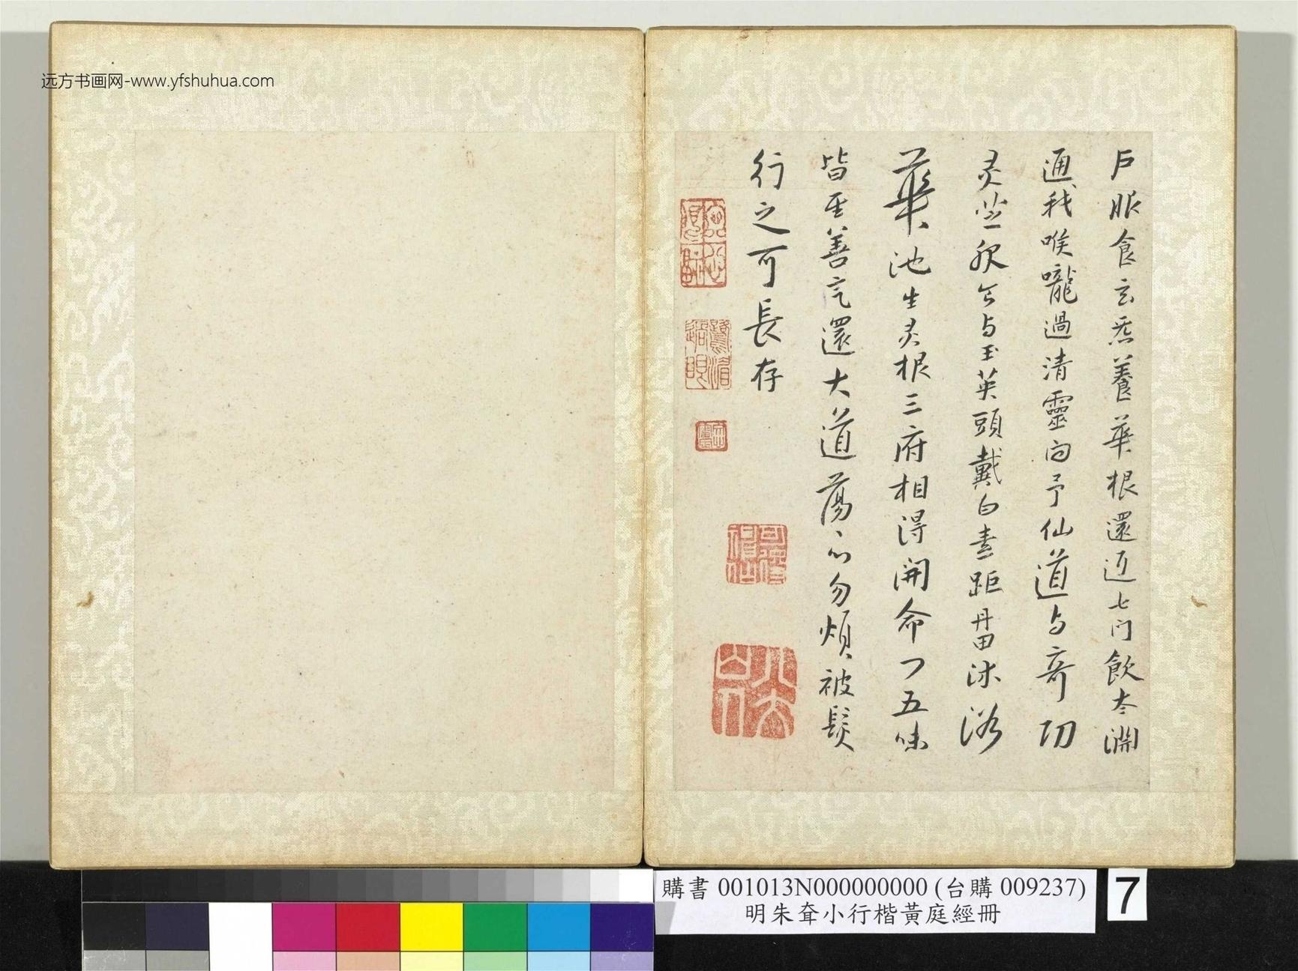 远方书画网-www.yfshuhua.com
戶服食玄炁養華根還返七門飲太淵
通我喉嚨過清靈向予仙道与奇功
灵芝及与玉英頭戴白素距丹田沐浴
華池生灵根三府相得開命门五味
皆至善气還大道蕩〻心勿煩被髮
行之可長存
八大山人
購書 001013N000000000 (台購 009237)
明朱耷小行楷黃庭經冊
7